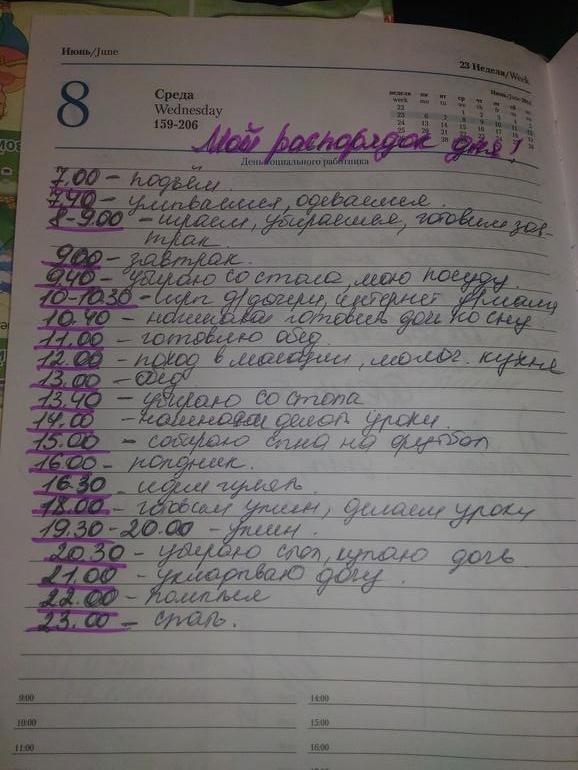 Июнь/June
23 Неделя/Week
8
Среда
Wednesday
159-206
Июнь/June
неделя пн вт ср чт пт сб вс
week mo tu we th
22
23
24
25
26
Мой распорядок дня!
День социального работника
7.00 - подъём.
7.40 - умываемся, одеваемся.
8-9.00 - играем, убираемся, готовим зав-
трак.
9.00 - завтрак.
9.40 - убираю со стола, мою посуду.
10-10.30 - игры д/дочери, интернет д/мамы
10.40 - начинаем готовить дочь ко сну
11.00 - готовлю обед
12.00 - поход в магазин, молоч. кухня
13.00 - обед
13.40 - убираю со стола
14.00 - начинаем делать уроки.
15.00 - собираю сына на футбол
16.00 - полдник.
16.30 - идем гулять.
18.00 - готовим ужин, делаем уроки
19.30-20.00 - ужин.
20.30 - убираю стол, купаю дочь
21.00 - укладываю дочу.
22.00 - компьем
23.00 - спать.
9:00 14:00
10:00 15:00
11:00 16:00